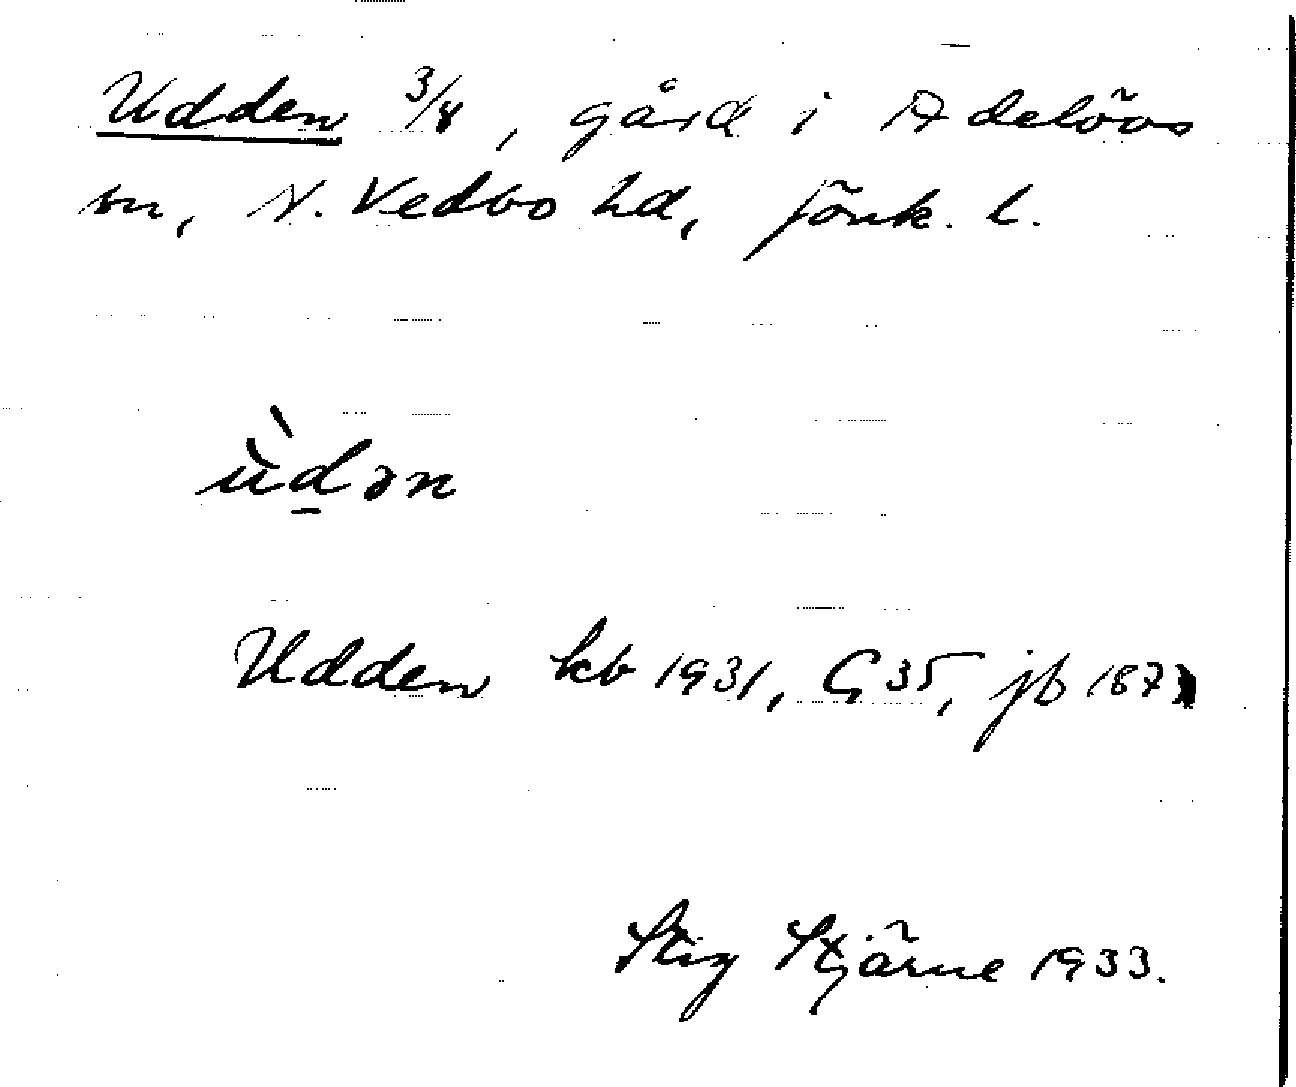 Udden 3/8, gård i Adelövs
sn, N. Vedbo hd, Jönk. l.
ùd̲ən
Udden kb 1931, G 35, jb 187
Stig Stjärne 1933.